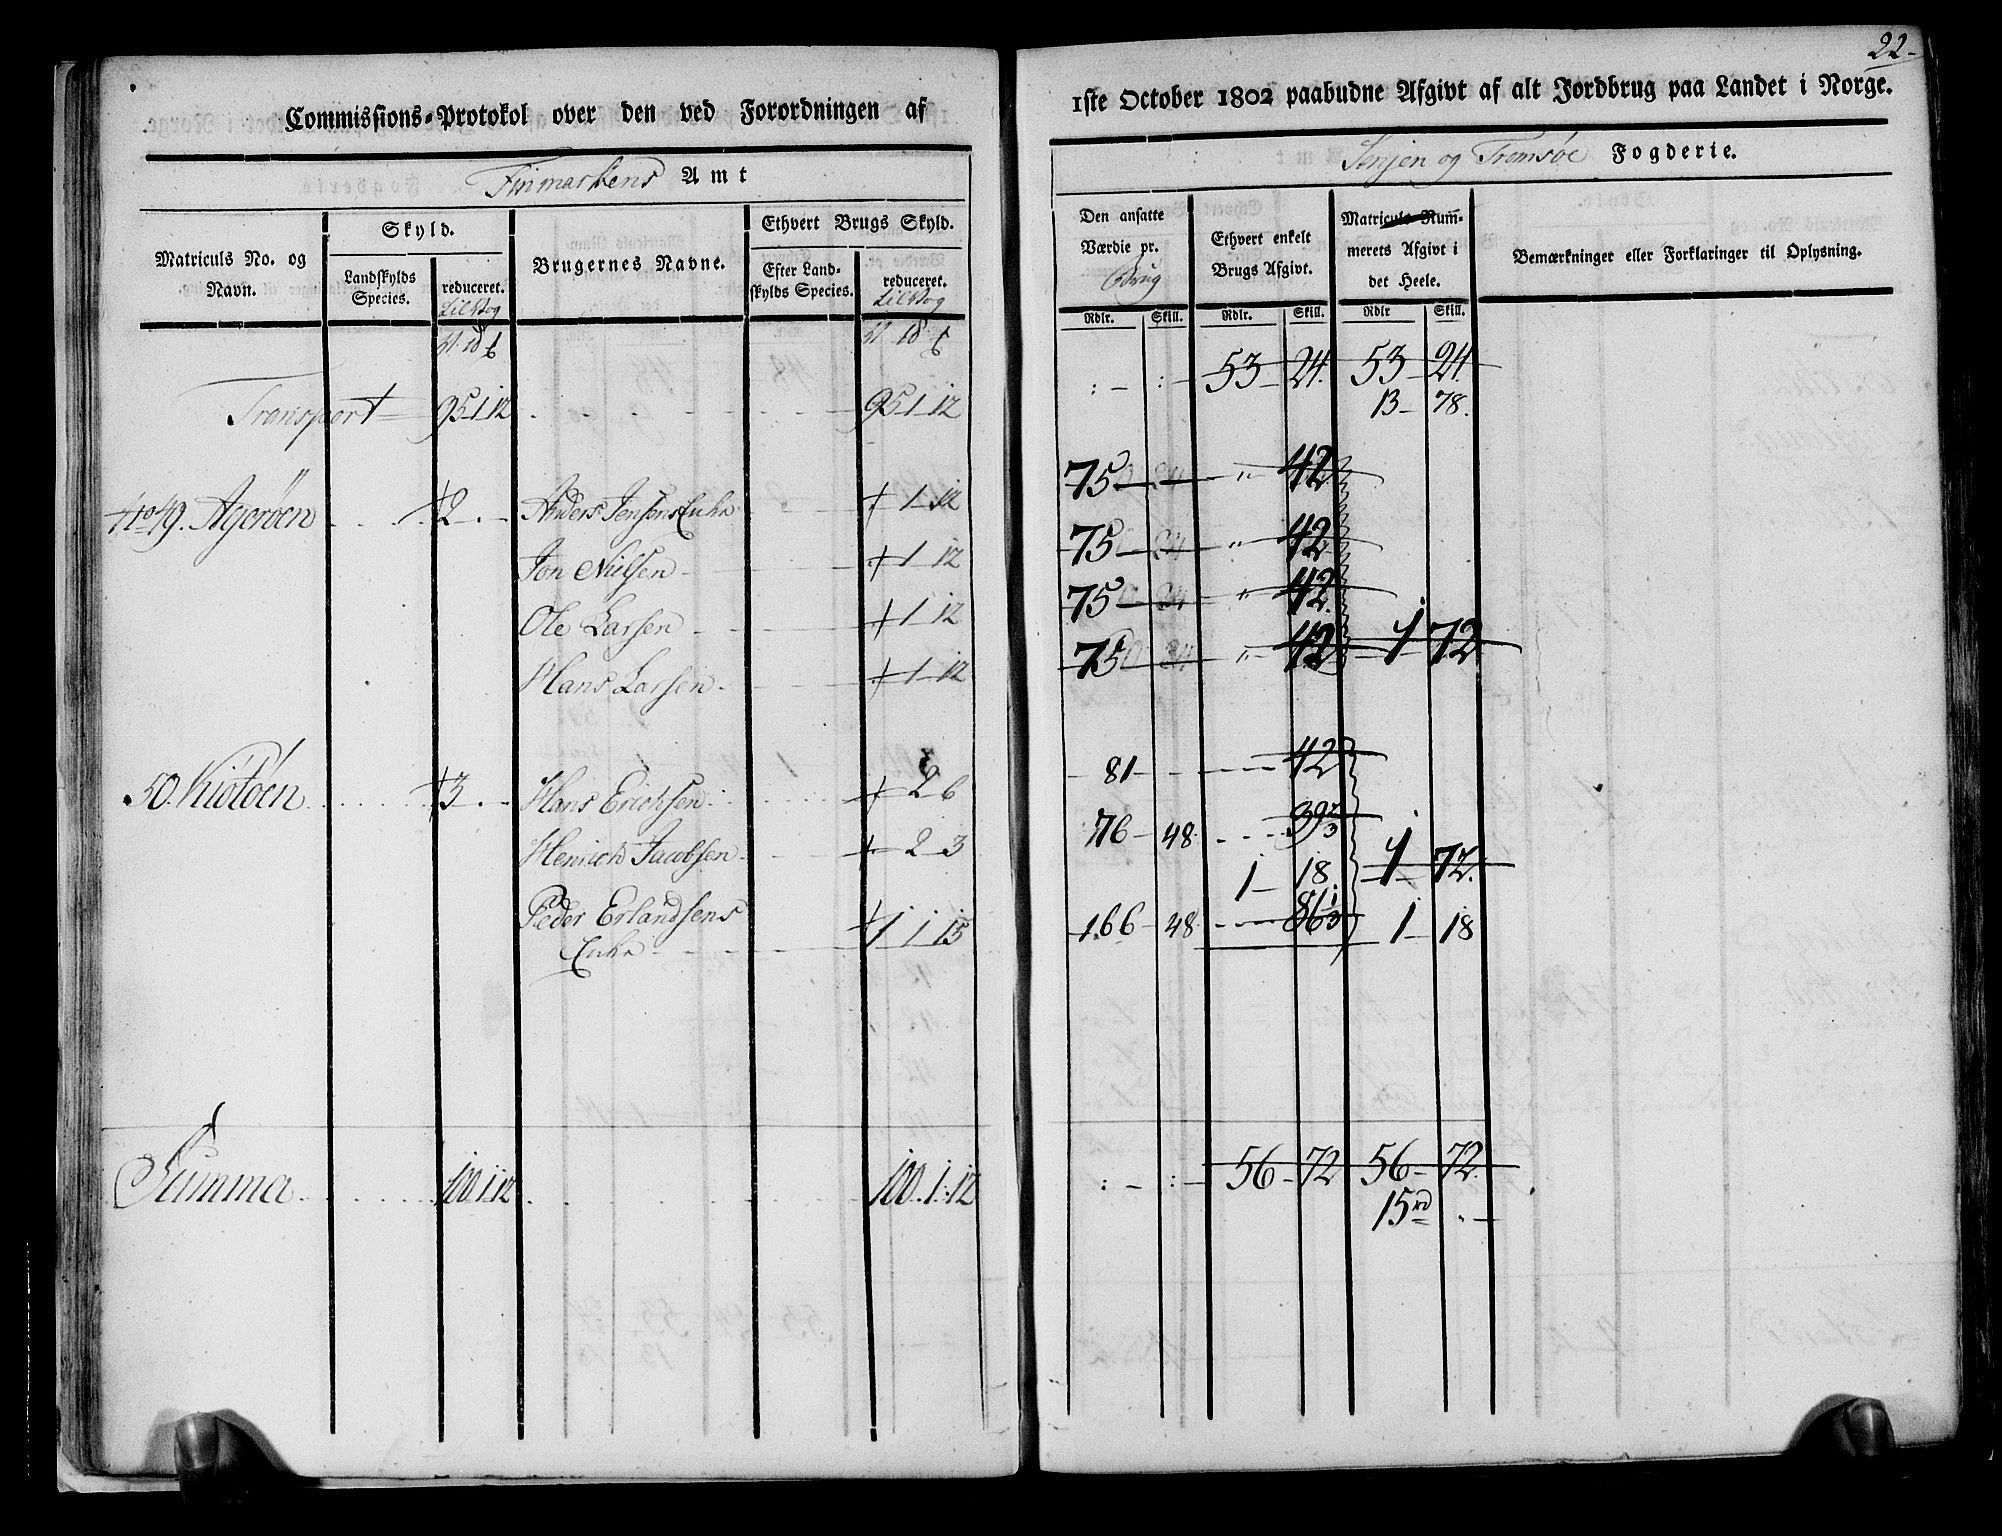 22.
Commissions-Protokol over den ved Forordningen af
1ste October 1802 paabudne Afgivt af alt Jordbrug paa Landet i Norge.
Finmarkens Amt
Senjen og Tromsøe Fogderie.
Matriculs No. og Navn.
Skyld.
Landskylds Species.
reduceret.
Brugernes Navne.
Ethvert Brugs Skyld.
Efter Landskylds Species.
reduceret.
Den ansatte Værdie pr. Brug
Ethvert enkelt Brugs Afgivt.
Matriculs-Nummerets Afgivt i det Heele.
Bemærkninger eller Forklaringer til Oplysning.
Rdlr. Skill. Rdlr. Skill. Rdlr Skill.
Transport 95 1 12 95 1 12 53 24. 53 24.
13 78.
No 49. Agerøen 2 Anders Jensens Enke 1 12 75 42
Jon Nielsen 1 12 75 42
Ole Larsen 1 12 75 42.
Hans Larsen 1 12 75 42 1 72
50. Kiøtøen 3 Hans Erichsen 2 6 81 42
Henrich Jacobsen 2 3 76 48 39 2/3
1 18 1 72.
Peder Erlandsens 1 1 15 166 48 86 1/3 1 18
Enke
Summa 100 1 12 100 1 12 56 72 56 72.
15